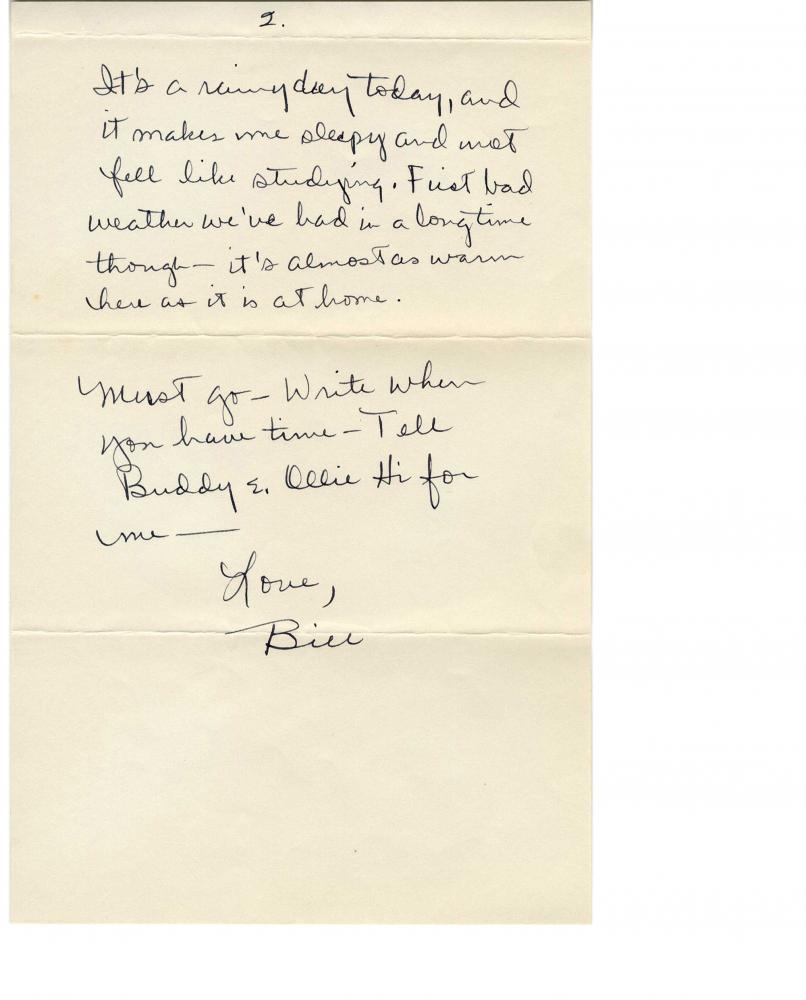 2.
It's a rainy day today, and
it makes me sleepy and not
fell like studying. First bad
weather we've had in a long time
though — it's almost as warm
here as it is at home.
Must go — Write when
you have time — Tell
Buddy &. Ollie Hi for
me —
Love,
Bill